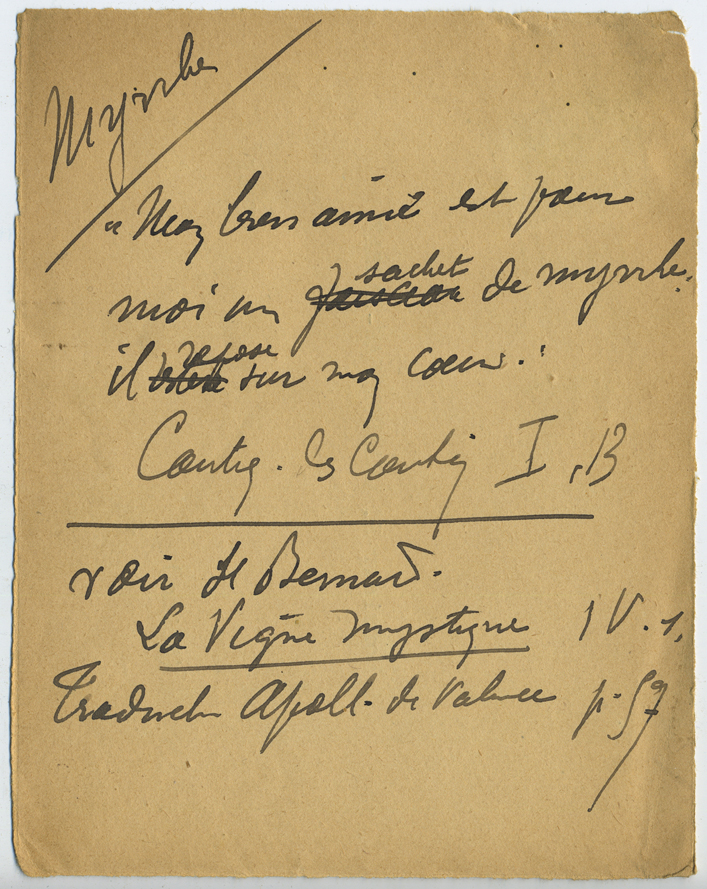 Myrrhe
"Mon bien aimé est pour
moi un faisceau sachet de myrrhe,
il repose sur mon cœur."
Cantiq. des Cantiq I, 13
voir St Bernard.
La Vigne mystique IV. 1,
Traduct Apoll. de Valence p. 57